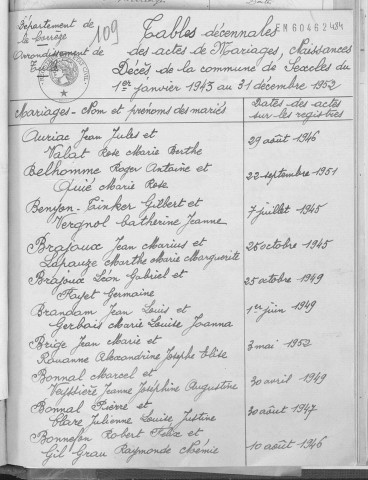 Département de
la Corrèze
Arrondissement de
Tulle
109
EM60462 484
Tables décennales
des actes de Mariages, Naissances
Décès, de la commune de Sexcles du
1er janvier 1943 au 31 décembre 1952
Mariages - Nom et prénoms des mariés
Dates des actes
sur les registres
Auriac Jean Jules et
Valat Rose Marie Berthe 29 août 1946
Belhomme Roger Antoine et
Quié Marie Rose 22 septembre 1951
Benyon-Tinker Gilbert et
Vergnol Catherine Jeanne 7 juillet 1945
Brajoux Jean Marius et
Lapauze Marthe Marie Marguerite 26 octobre 1945
Brajoux Léon Gabriel et
Fayet Germaine 25 octobre 1949
Brandam Jean Louis et
Gerbais Marie Louise Joanna 1er juin 1949
Brige Jean Marie et
Rouanne Alexandrine Josephe Elise 3 mai 1952
Bonnal Marcel et
Veyssière Jeanne Joséphine Augustine 30 avril 1949
Bonnal Pierre et
Clare Julienne Louise Justine 30 août 1947
Bonnefon Robert Félix et
Gil Grau Raymonde Noémie 10 août 1946